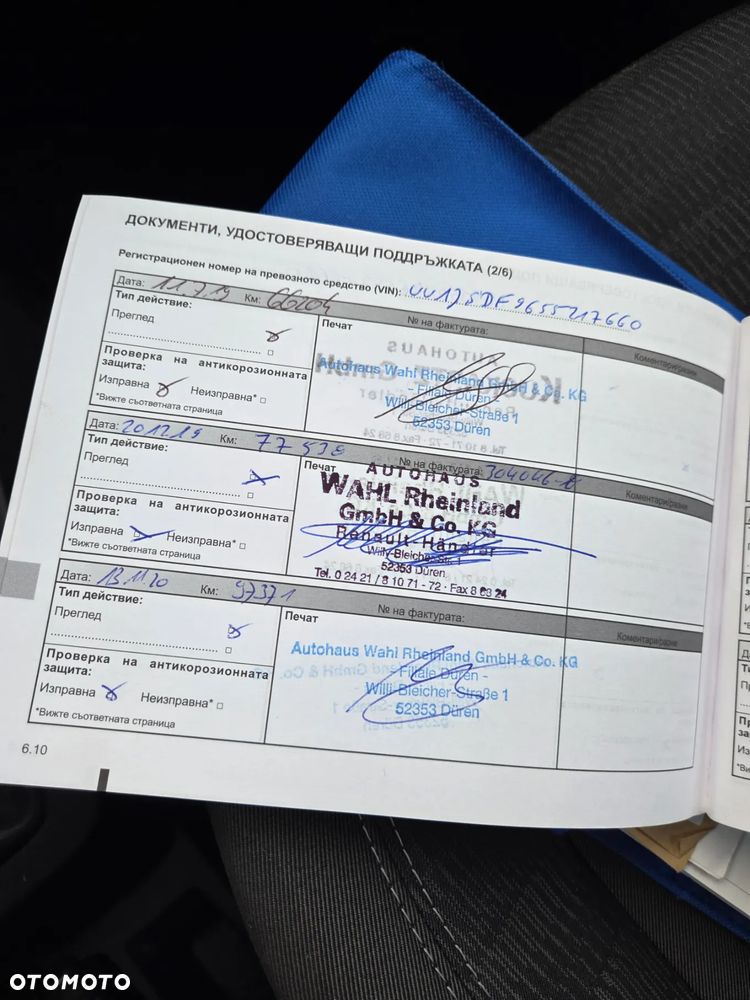 ДОКУМЕНТИ, УДОСТОВЕРЯВАЩИ ПОДДРЪЖКАТА (2/6)
Регистрационен номер на превозното средство (VIN): UU17SDF9655217660
Дата: 11.7.19 Км: 66204 № на фактурата: Коментари/разни
Тип действие:
Преглед
Печат
Проверка на антикорозионната
защита:
Изправна Неизправна*
*Вижте съответната страница
Autohaus Wahl Rheinland GmbH & Co. KG
- Filiale Düren -
Willi-Bleicher-Straße 1
52353 Düren
Дата: 20.12.19 Км: 77538 № на фактурата: Коментари/разни
Тип действие:
Преглед
Печат
Проверка на антикорозионната
защита:
Изправна Неизправна*
*Вижте съответната страница
AUTOHAUS
WAHL Rheinland
GmbH & Co. KG
Renault-Händler
Willy-Bleicher-Str. 1
52353 Düren
Tel. 0 24 21 / 8 10 71 - 72 · Fax 8 68 24
Дата: 13.11.20 Км: 97371 № на фактурата: Коментари/разни
Тип действие:
Преглед
Печат
Проверка на антикорозионната
защита:
Изправна Неизправна*
*Вижте съответната страница
Autohaus Wahl Rheinland GmbH & Co. KG
- Filiale Düren -
Willi-Bleicher-Straße 1
52353 Düren
6.10
OTOMOTO